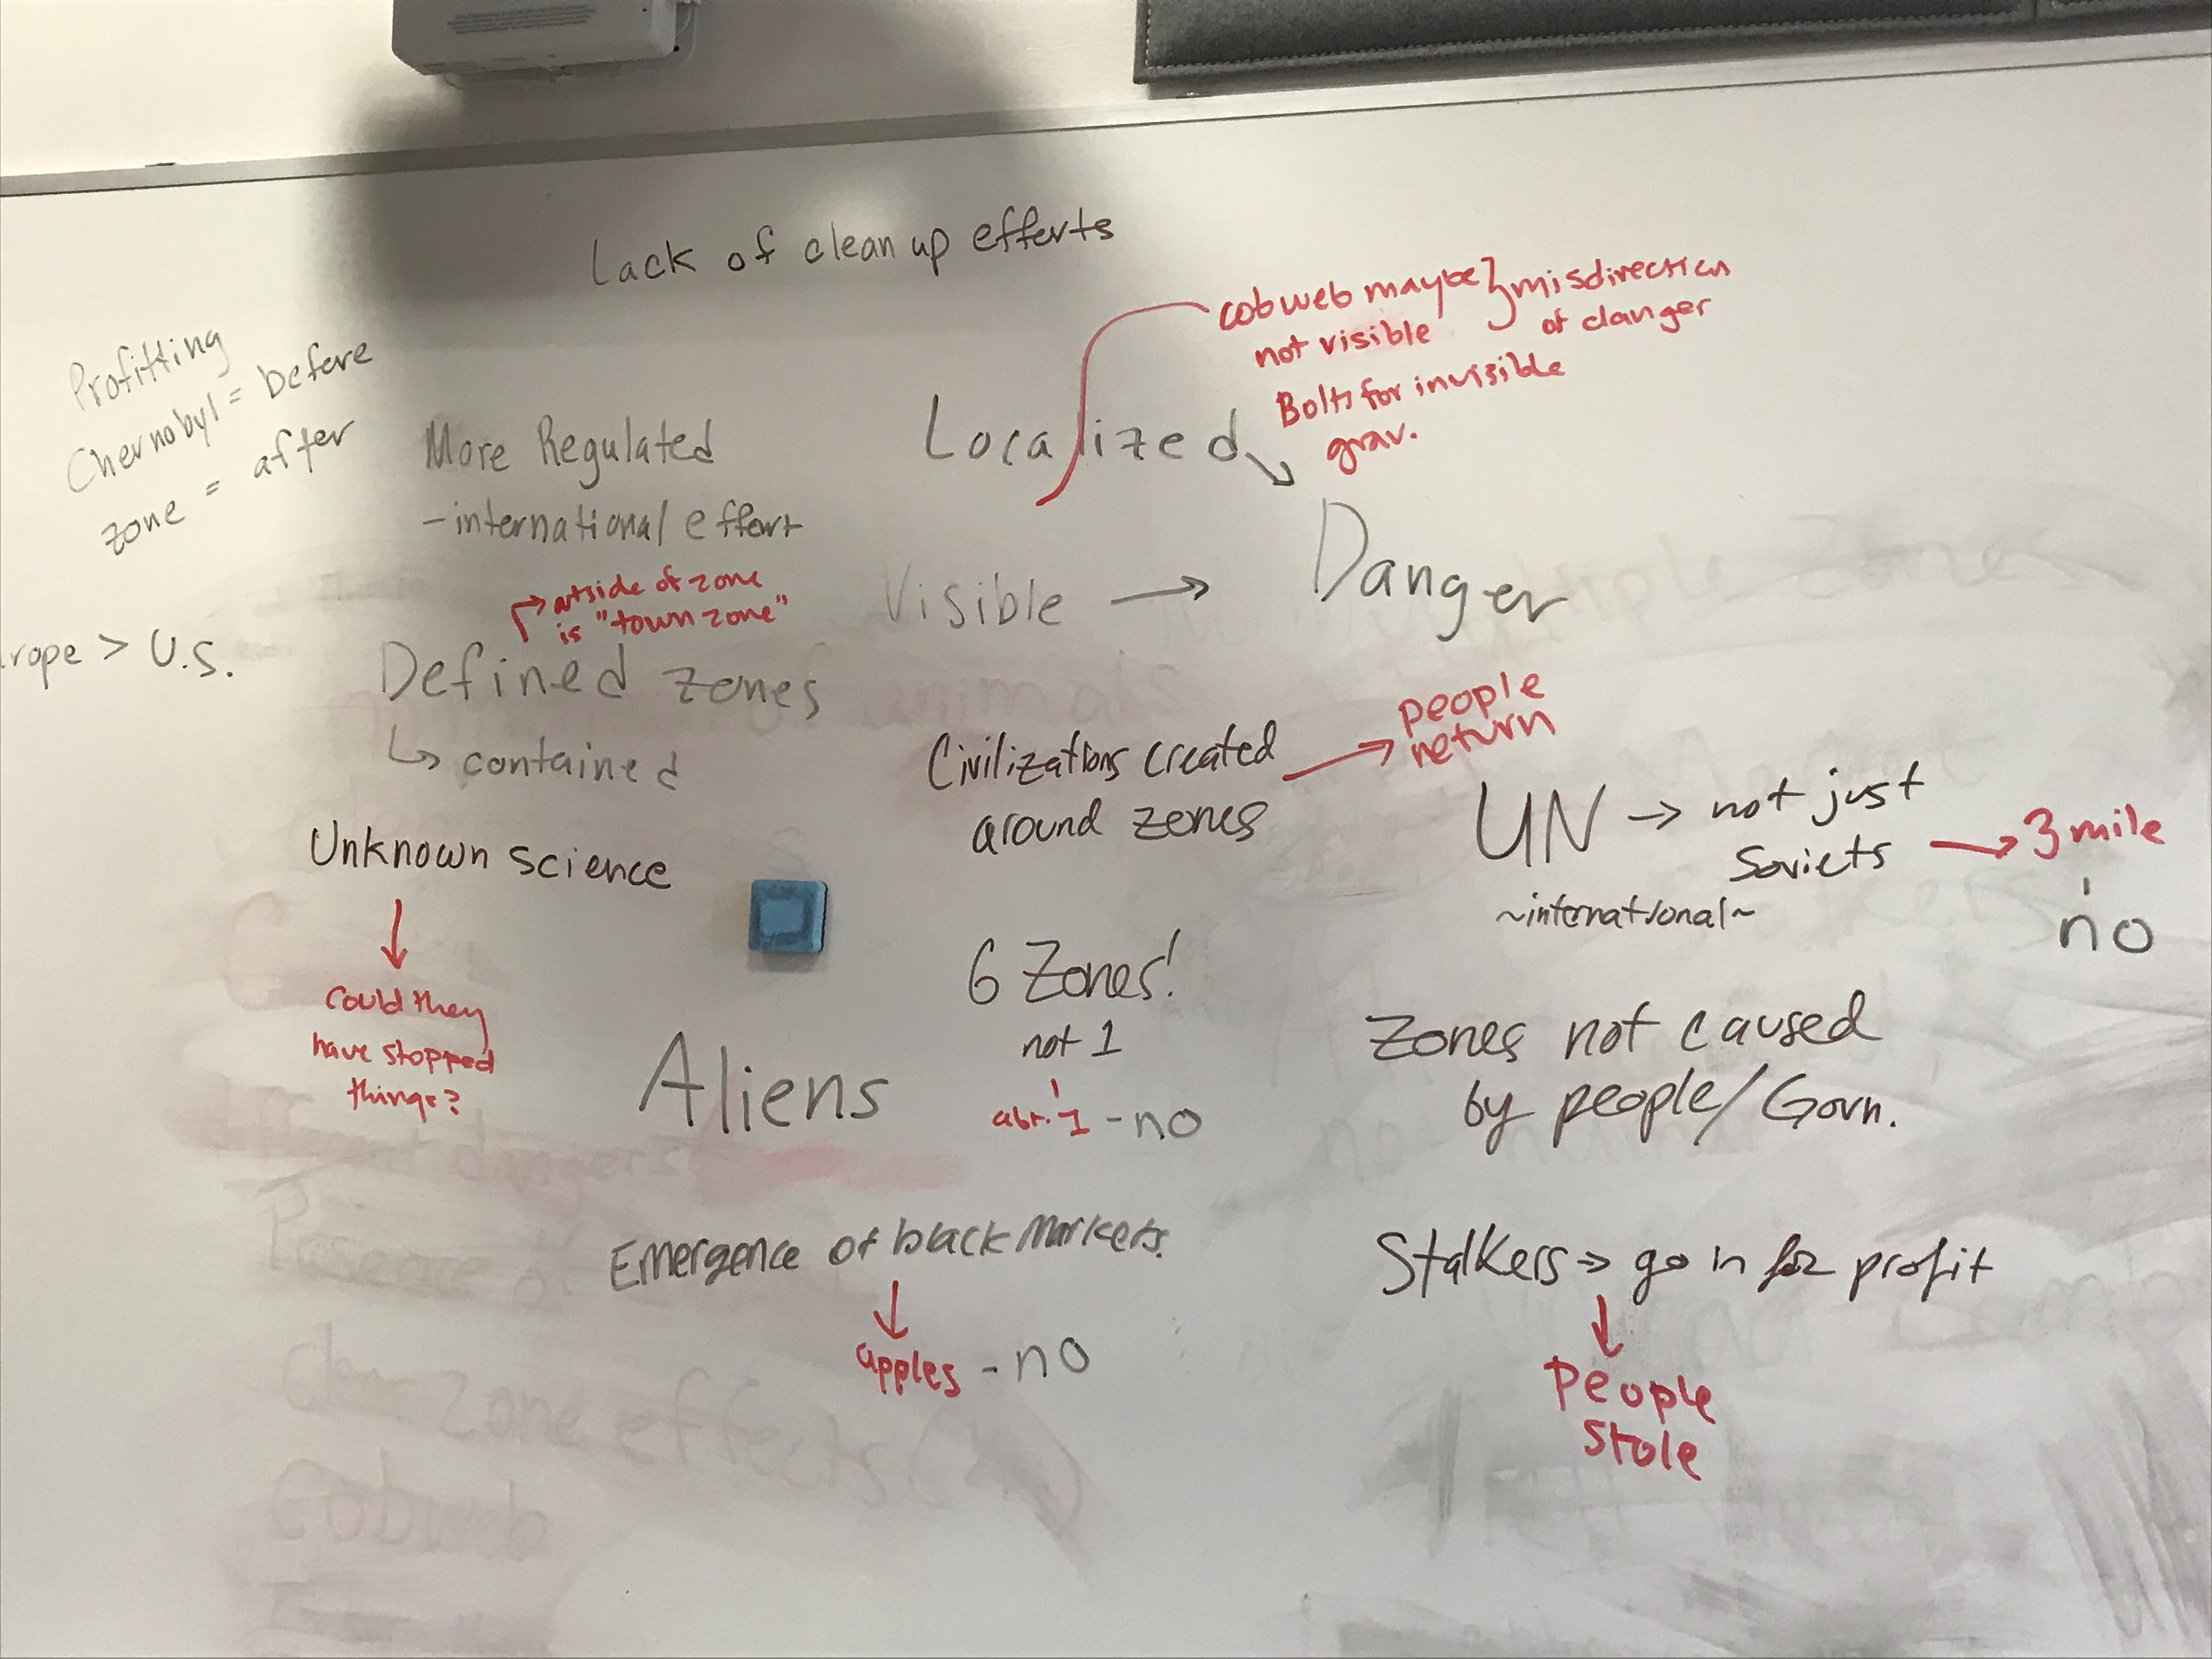 Lack of clean up efforts
Profitting
Chernobyl = before
zone = after
More Regulated
- international effort
Localized
cobweb maybe } misdirection
not visible of danger
Bolts for invisible
grav.
Visible → Danger
outside of zone
is "town zone"
Defined zones
↳ contained
> U.S.
Civilizations created
around zones
→ people
return
UN → not just
Soviets → 3 mile
~international~
no
Unknown science
could they
have stopped
things?
6 Zones!
not 1
abt. 1 - no
Aliens
Zones not caused
by people/Govn.
Emergence of black Markets.
apples - no
Stalkers → go in for profit
People
Stole
animals
dangers
clear zone effects